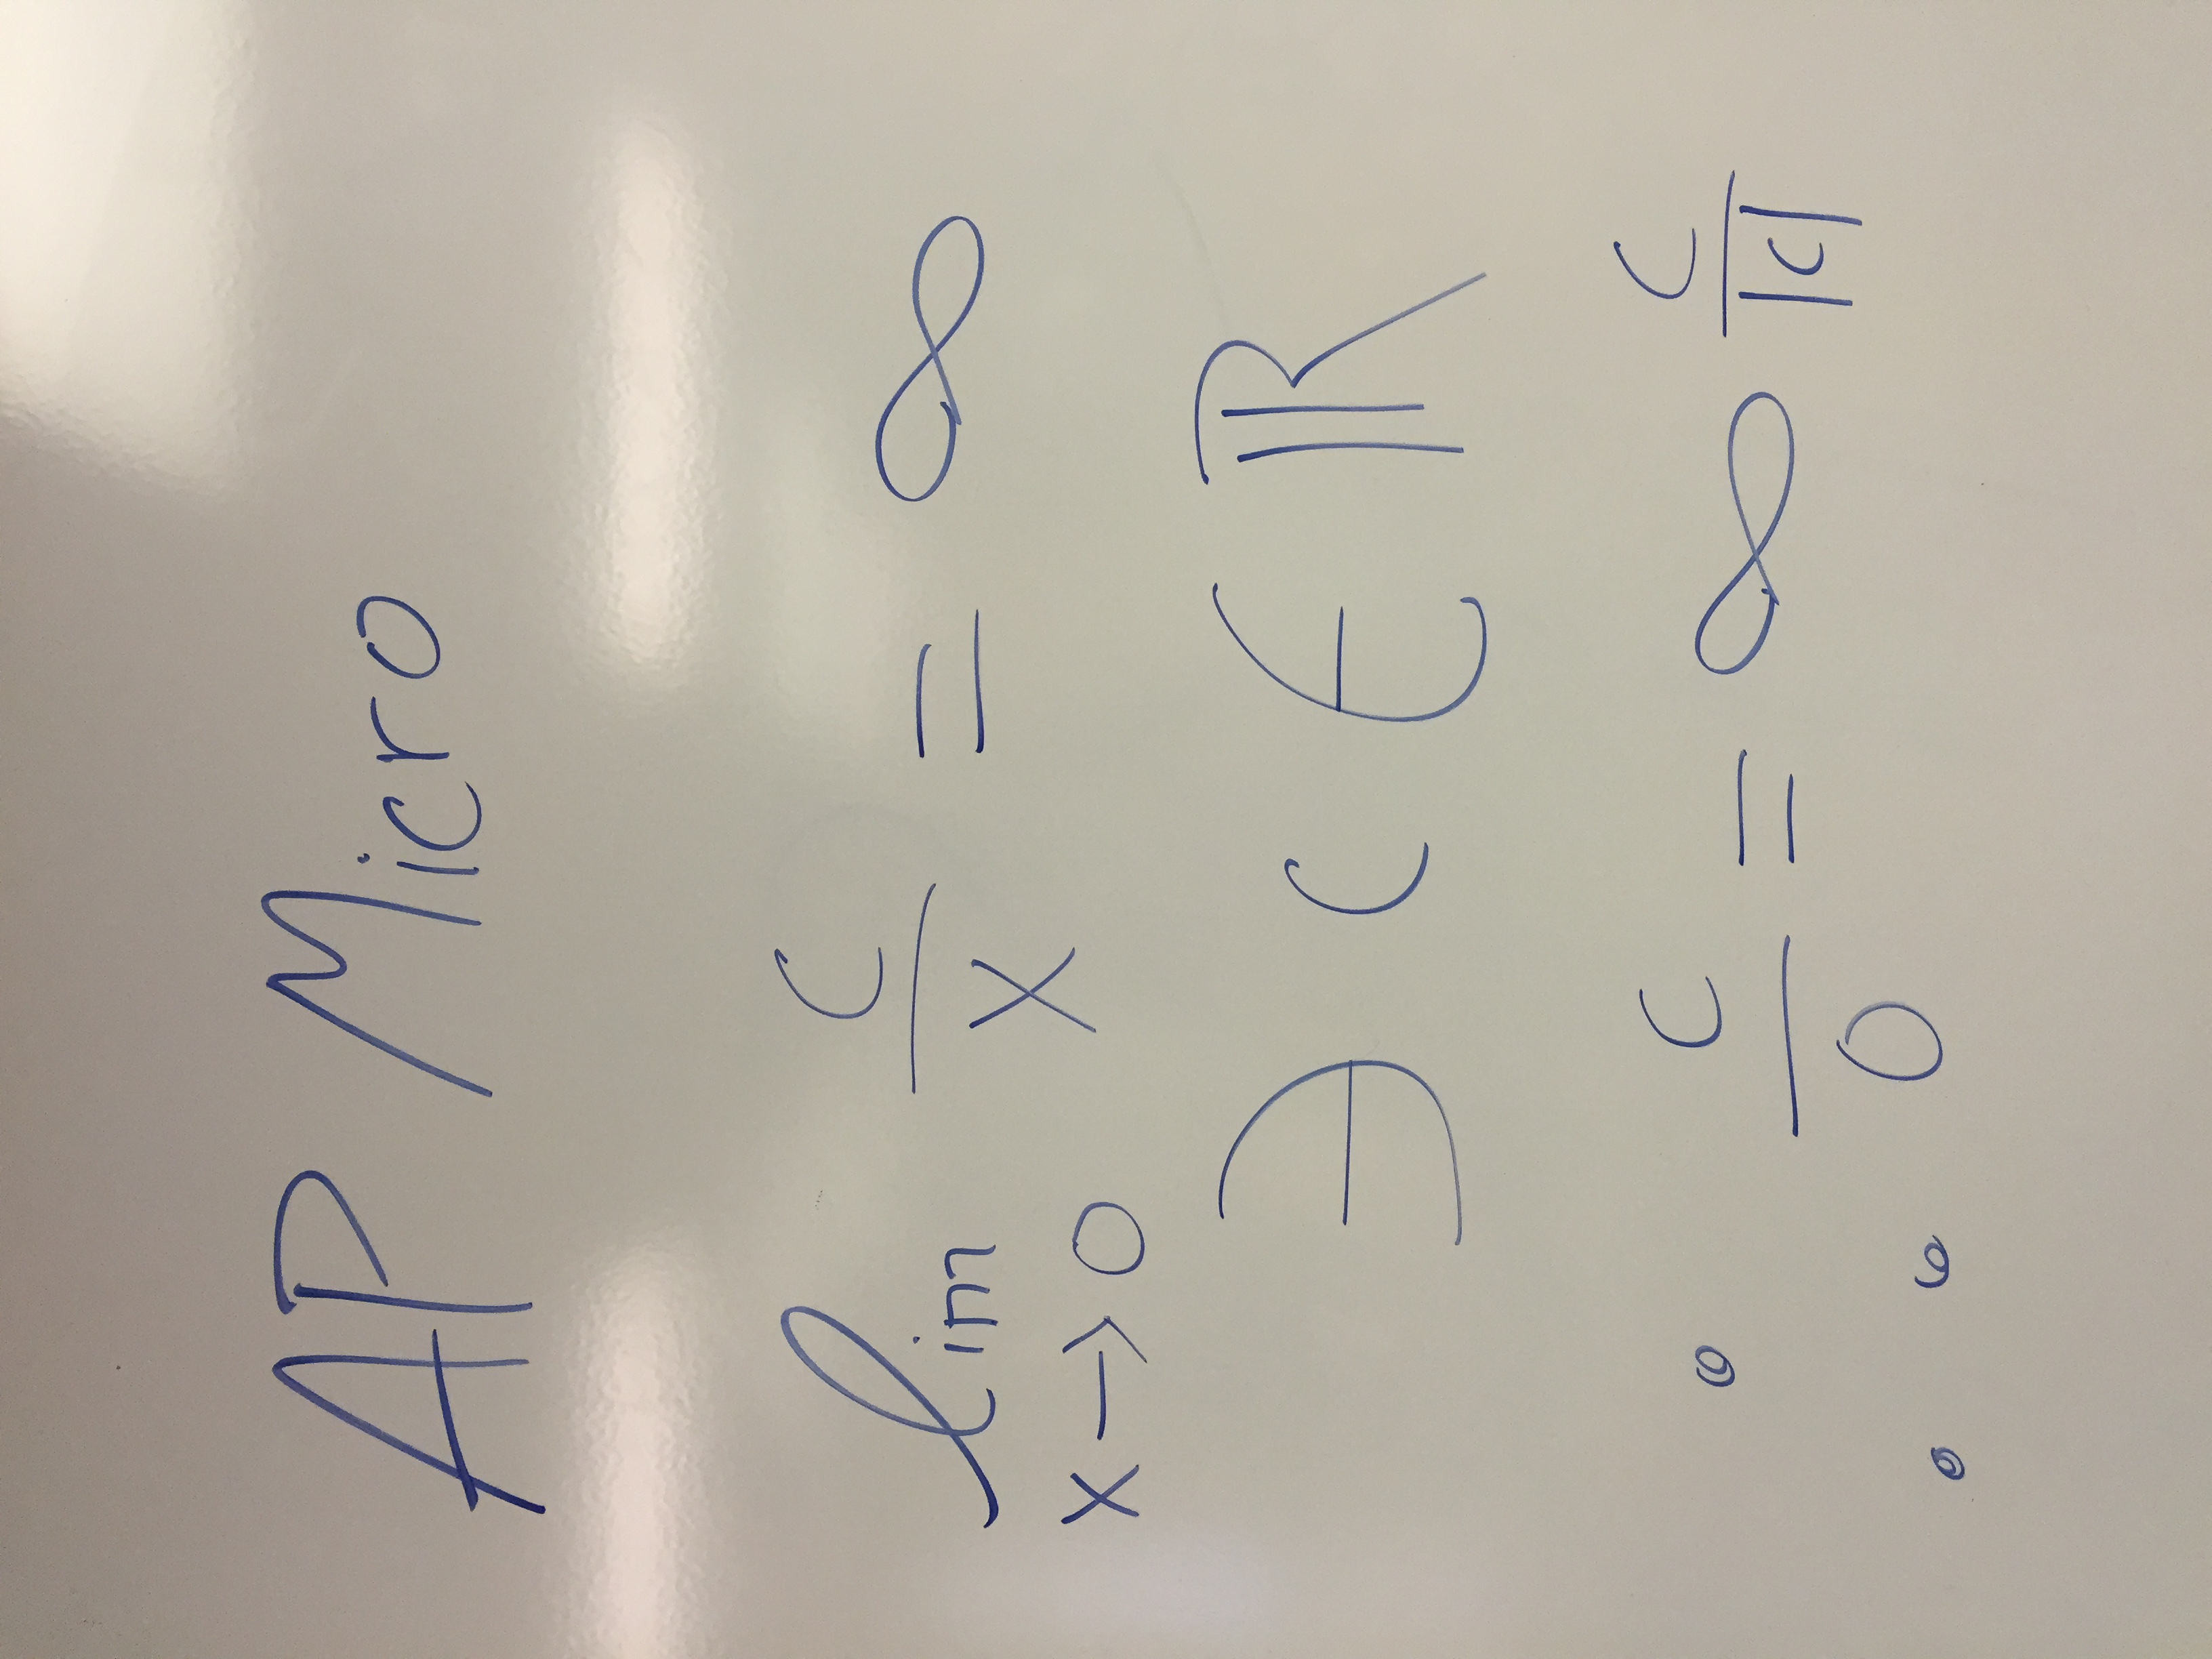 AP Micro
lim x→0 c/x = ∞
∋ c ∈ ℝ
∴ c/0 = ∞ c/|c|